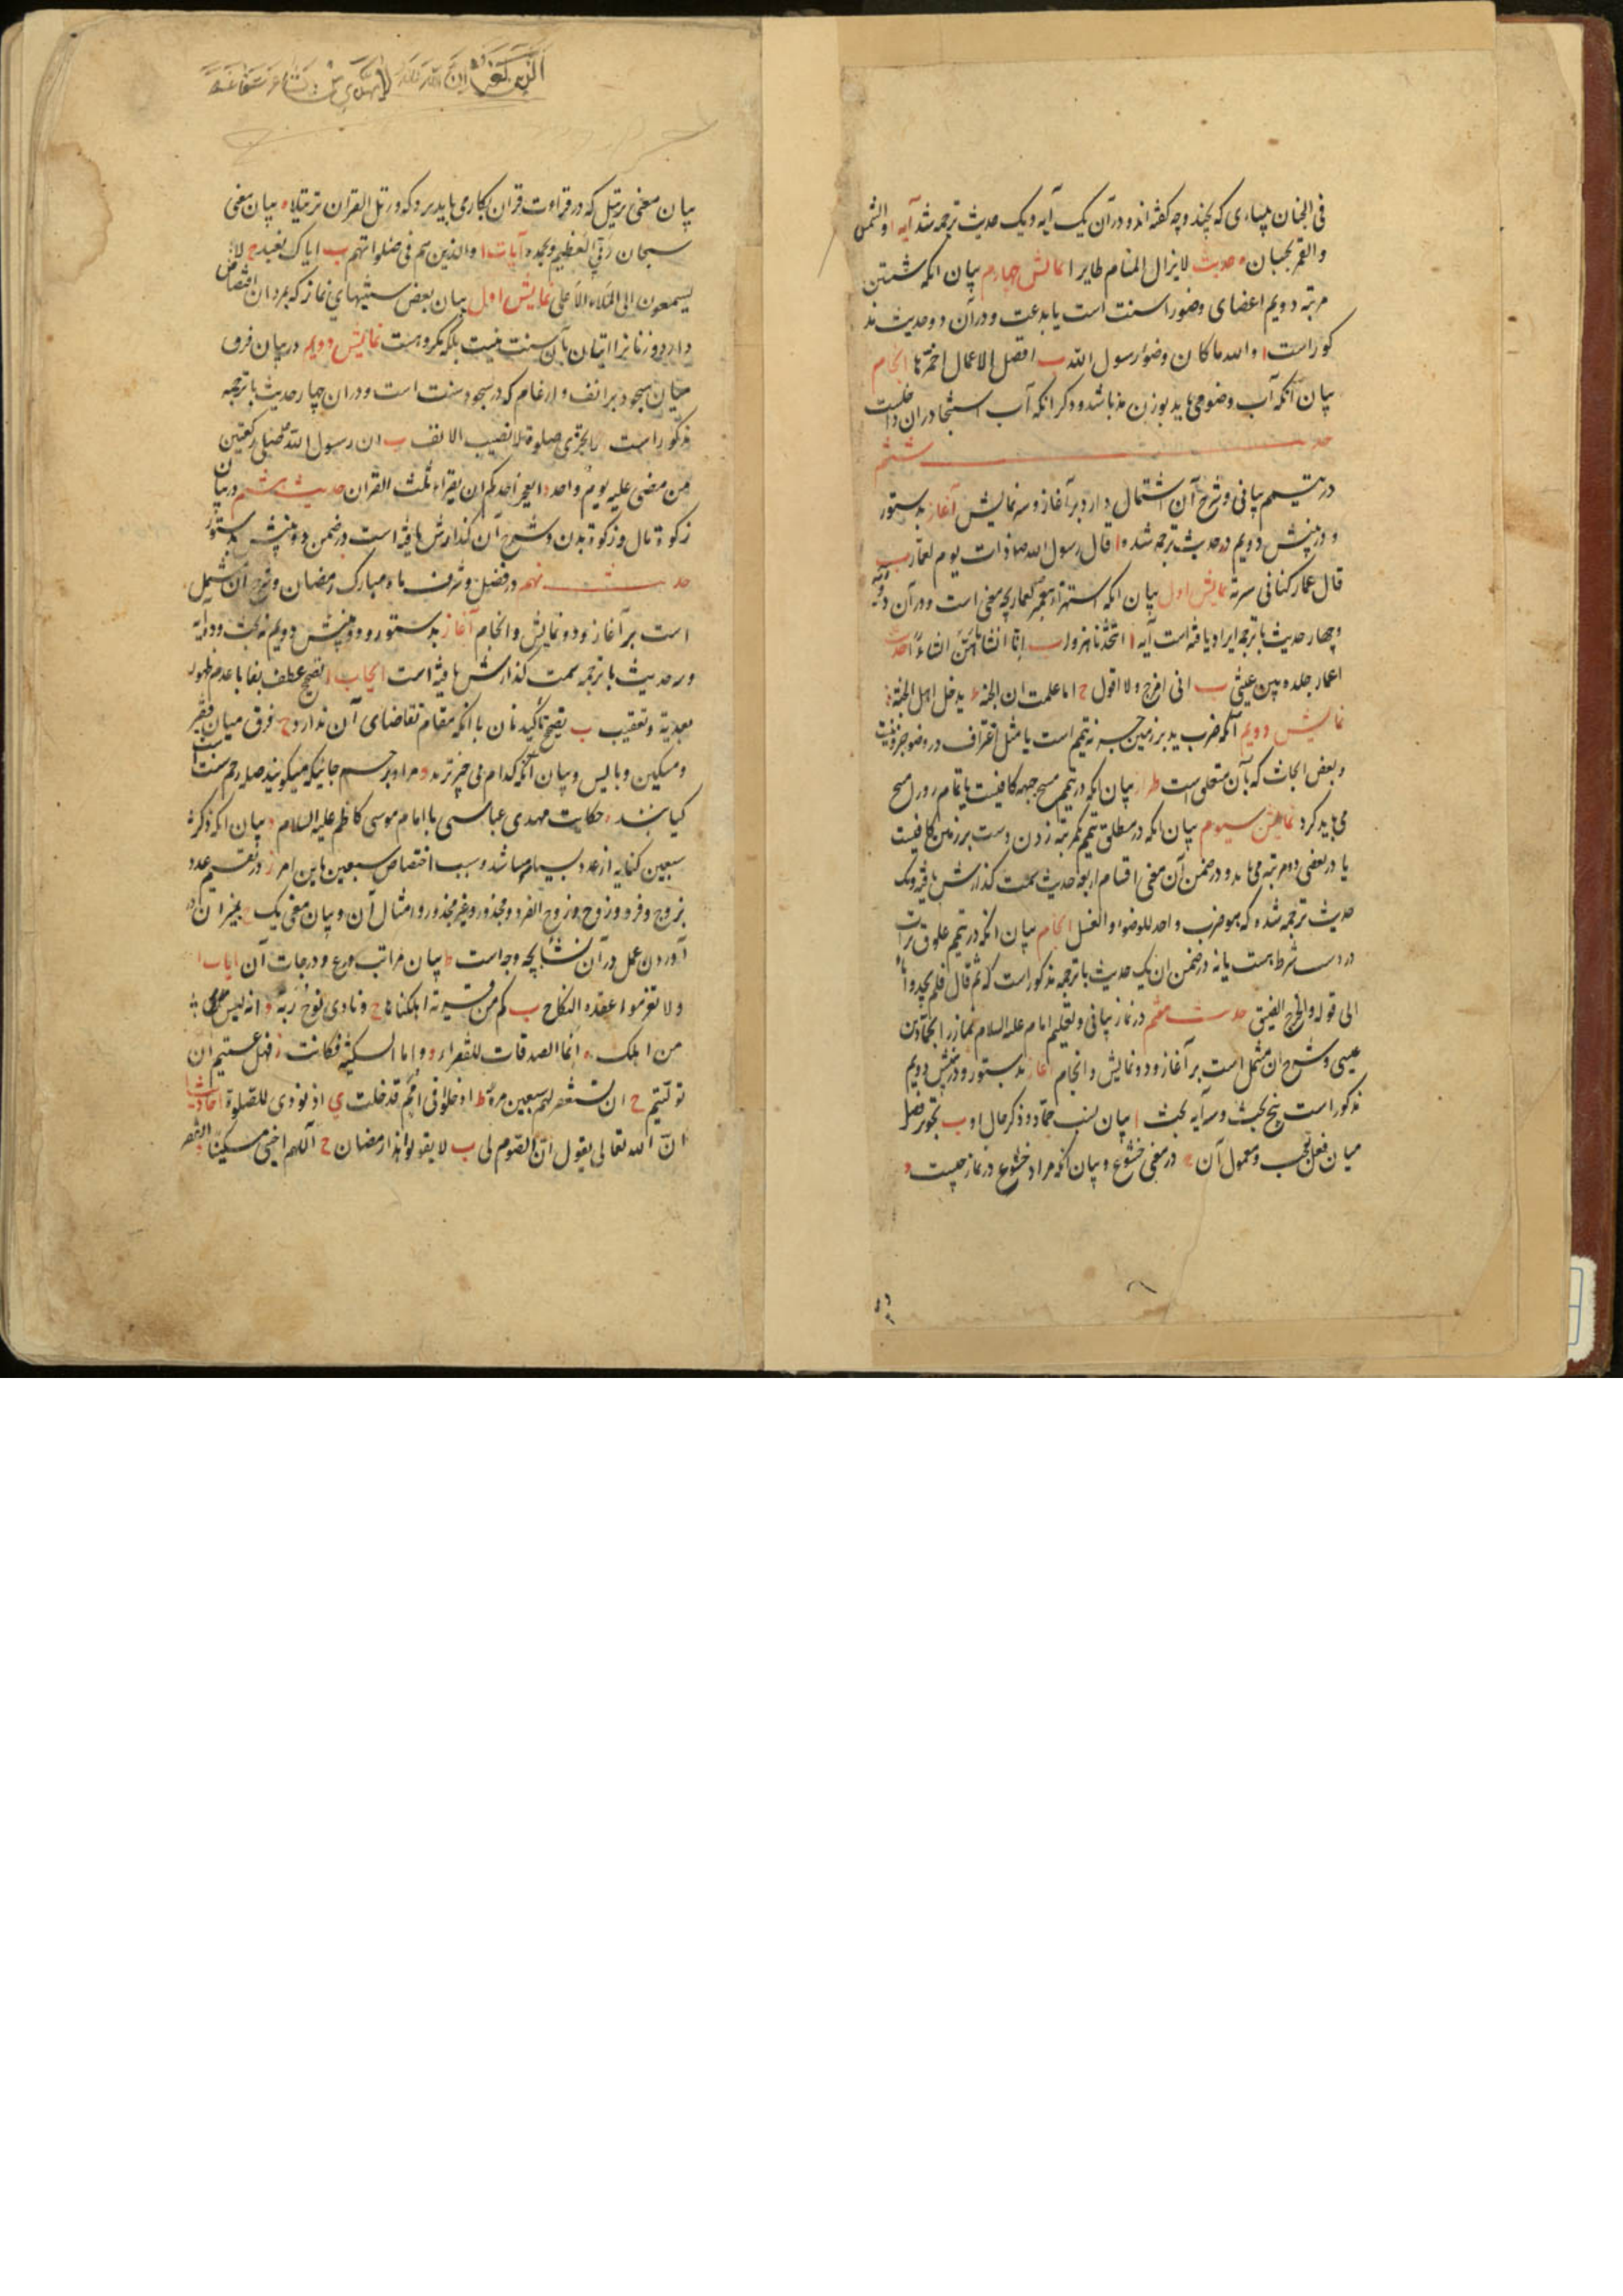 فی الجنان پساءی که بچند وجه کفته اند و در آن یک آیه و یک حدیث ترجمه شد آیه ا والشمس
والقمر بحسبان حدیث لایزال المنام طایرا نمایش چهارم بیان انکه شستن
مرتبه دویم اعضای وضو را سنت است یا بدعت و در آن دو حدیث مذ
کور است ا والله ما کان وضوء رسول الله ب افضل الاعمال احمزها انجام
بیان آنکه آب وضو می باید بوزن مد باشد و ذکر انکه آب استنجا در ان داخلست
حدیث ششم
در تیمم بیانی و شرح آن اشتمال دارد بر آغاز و سه نمایش آغاز بدستور
و در بینش دویم دو حدیث ترجمه شده ا قال رسول الله صا ذات یوم لعمار ب
قال عمار کنا فی سریة نمایش اول بیان انکه استهزاء پیغمبر بعمار بچه معنی است و در آن دو آیه
و چهار حدیث با ترجمه ایراد یافته است آیه ا اتتخذنا هزوا ب انا انشاناهن انشاء احادیث
اعمار جلده بین عینی ب انی امزح ولا اقول ح اما علمت ان الجنة لا یدخل اهل الجنة
نمایش دویم آنکه ضرب ید بر زمین جزء تیمم است یا مثل اغتراف در وضو جزو نیست
و بعض ابحاث که بآن متعلق است طراز بیان انکه در تیمم مسح جبهه کافیست یا تمام رو را مسح
می باید کرد نمایش سیوم بیان انکه در مطلق تیمم یکمرتبه زدن دست بر زمین کافیست
یا در بعضی دو مرتبه می باید و در ضمن آن معنی اقسام اربعه حدیث سمت گذارش یافته و یک
حدیث ترجمه شده که هو ضرب واحد للوضوء والغسل انجام بیان انکه در تیمم علوق تراب
در دست شرط هست یا نه در ضمن ان یک حدیث با ترجمه مذکور است که ثم قال فلم یجدوا ماء
الی قوله والحرج الضیق حدیث هفتم در نماز بیانی و تعلیم امام علیه السلام نماز را بحماد بن
عیسی و شرح ان مشتمل است بر آغاز و دو نمایش و انجام آغاز بدستور و در بینش دویم
مذکور است پنج بحث و سه آیه بحث ا بیان نسب حماد و ذکر حال او ب تجویز فصل
میان فعل تعجب و معمول آن ح در معنی خشوع و بیان انکه مراد خشوع در نماز چیست د
بیان معنی ترتیل که در قراءت قران بکار می باید برد که ورتل القران ترتیلا ه بیان معنی
سبحان ربی العظیم و بحمده آیات ا والذین هم فی صلواتهم ب ایاک نعبد ح لا
یسمعون الی الملاء الاعلی نمایش اول بیان بعض سنتهای نماز که بمردان اختصاص
دارد و زنانرا اتیان بآن سنت نیست بلکه مکروهست نمایش دویم در بیان فرق
میان سجود بر انف و ارغام که در سجود سنت است و در ان چهار حدیث با ترجمه
مذکور است ا لایجزی صلوة لا نصیب الانف ب ان رسول الله صلی رکعتین
من مضی علیه یوم واحد د ایعجز احدکم ان یقراء ثلث القران حدیث هشتم در بیان
زکوة مال و زکوة بدن و شرح آن گذارش یافته است در ضمن دو بینش بدستور
حدیث نهم در فضل و شرف ماه مبارک رمضان و شرح ان مشتمل
است بر آغاز و دو نمایش و انجام آغاز بدستور و در بینش دویم نه بحث و ده آیه
و سه حدیث با ترجمه سمت گذارش یافته است ابحاث ا تصحیح عطف بفا با عدم ظهور
بعدیة و تعقیب ب تصحیح تاکید بان با انکه مقام تقاضای آن ندارد ح فرق میان فقیر
و مسکین و بایس و بیان آنکه کدام بی چیزترند د مراد بر رحم جائیکه میکویند صله رحم سنت است
کیانند ه حکایت مهدی عباسی با امام موسی کاظم علیه السلام و بیان انکه ذکر
سبعین کنایه از عدد بسیار میباشد و سبب اختصاص سبعین باین امر ز در تقسیم عدد
بزوج و فرد و زوج زوج و زوج الفرد و مجذور و غیر مجذور و امثال آن و بیان معنی یک ح بمیزان در
آوردن عمل در آن نشاء بچه وجه است ط بیان مراتب ورع و درجات آن آیات ا
ولا تعزموا عقدة النکاح ب کم من قریة اهلکناها ح ونادی نوح ربه د انه لیس
من اهلک ه انما الصدقات للفقراء و واما السفینة فکانت ز فهل عسیتم ان
تولیتم ح ان تستغفر لهم سبعین مرة ط ادخلوا فی امم قد خلت ی اذ نودی للصلوة احادیث ا
ان الله تعالی یقول ان الصوم لی ب لا یقولوا هذا رمضان ح اللهم احینی مسکینا